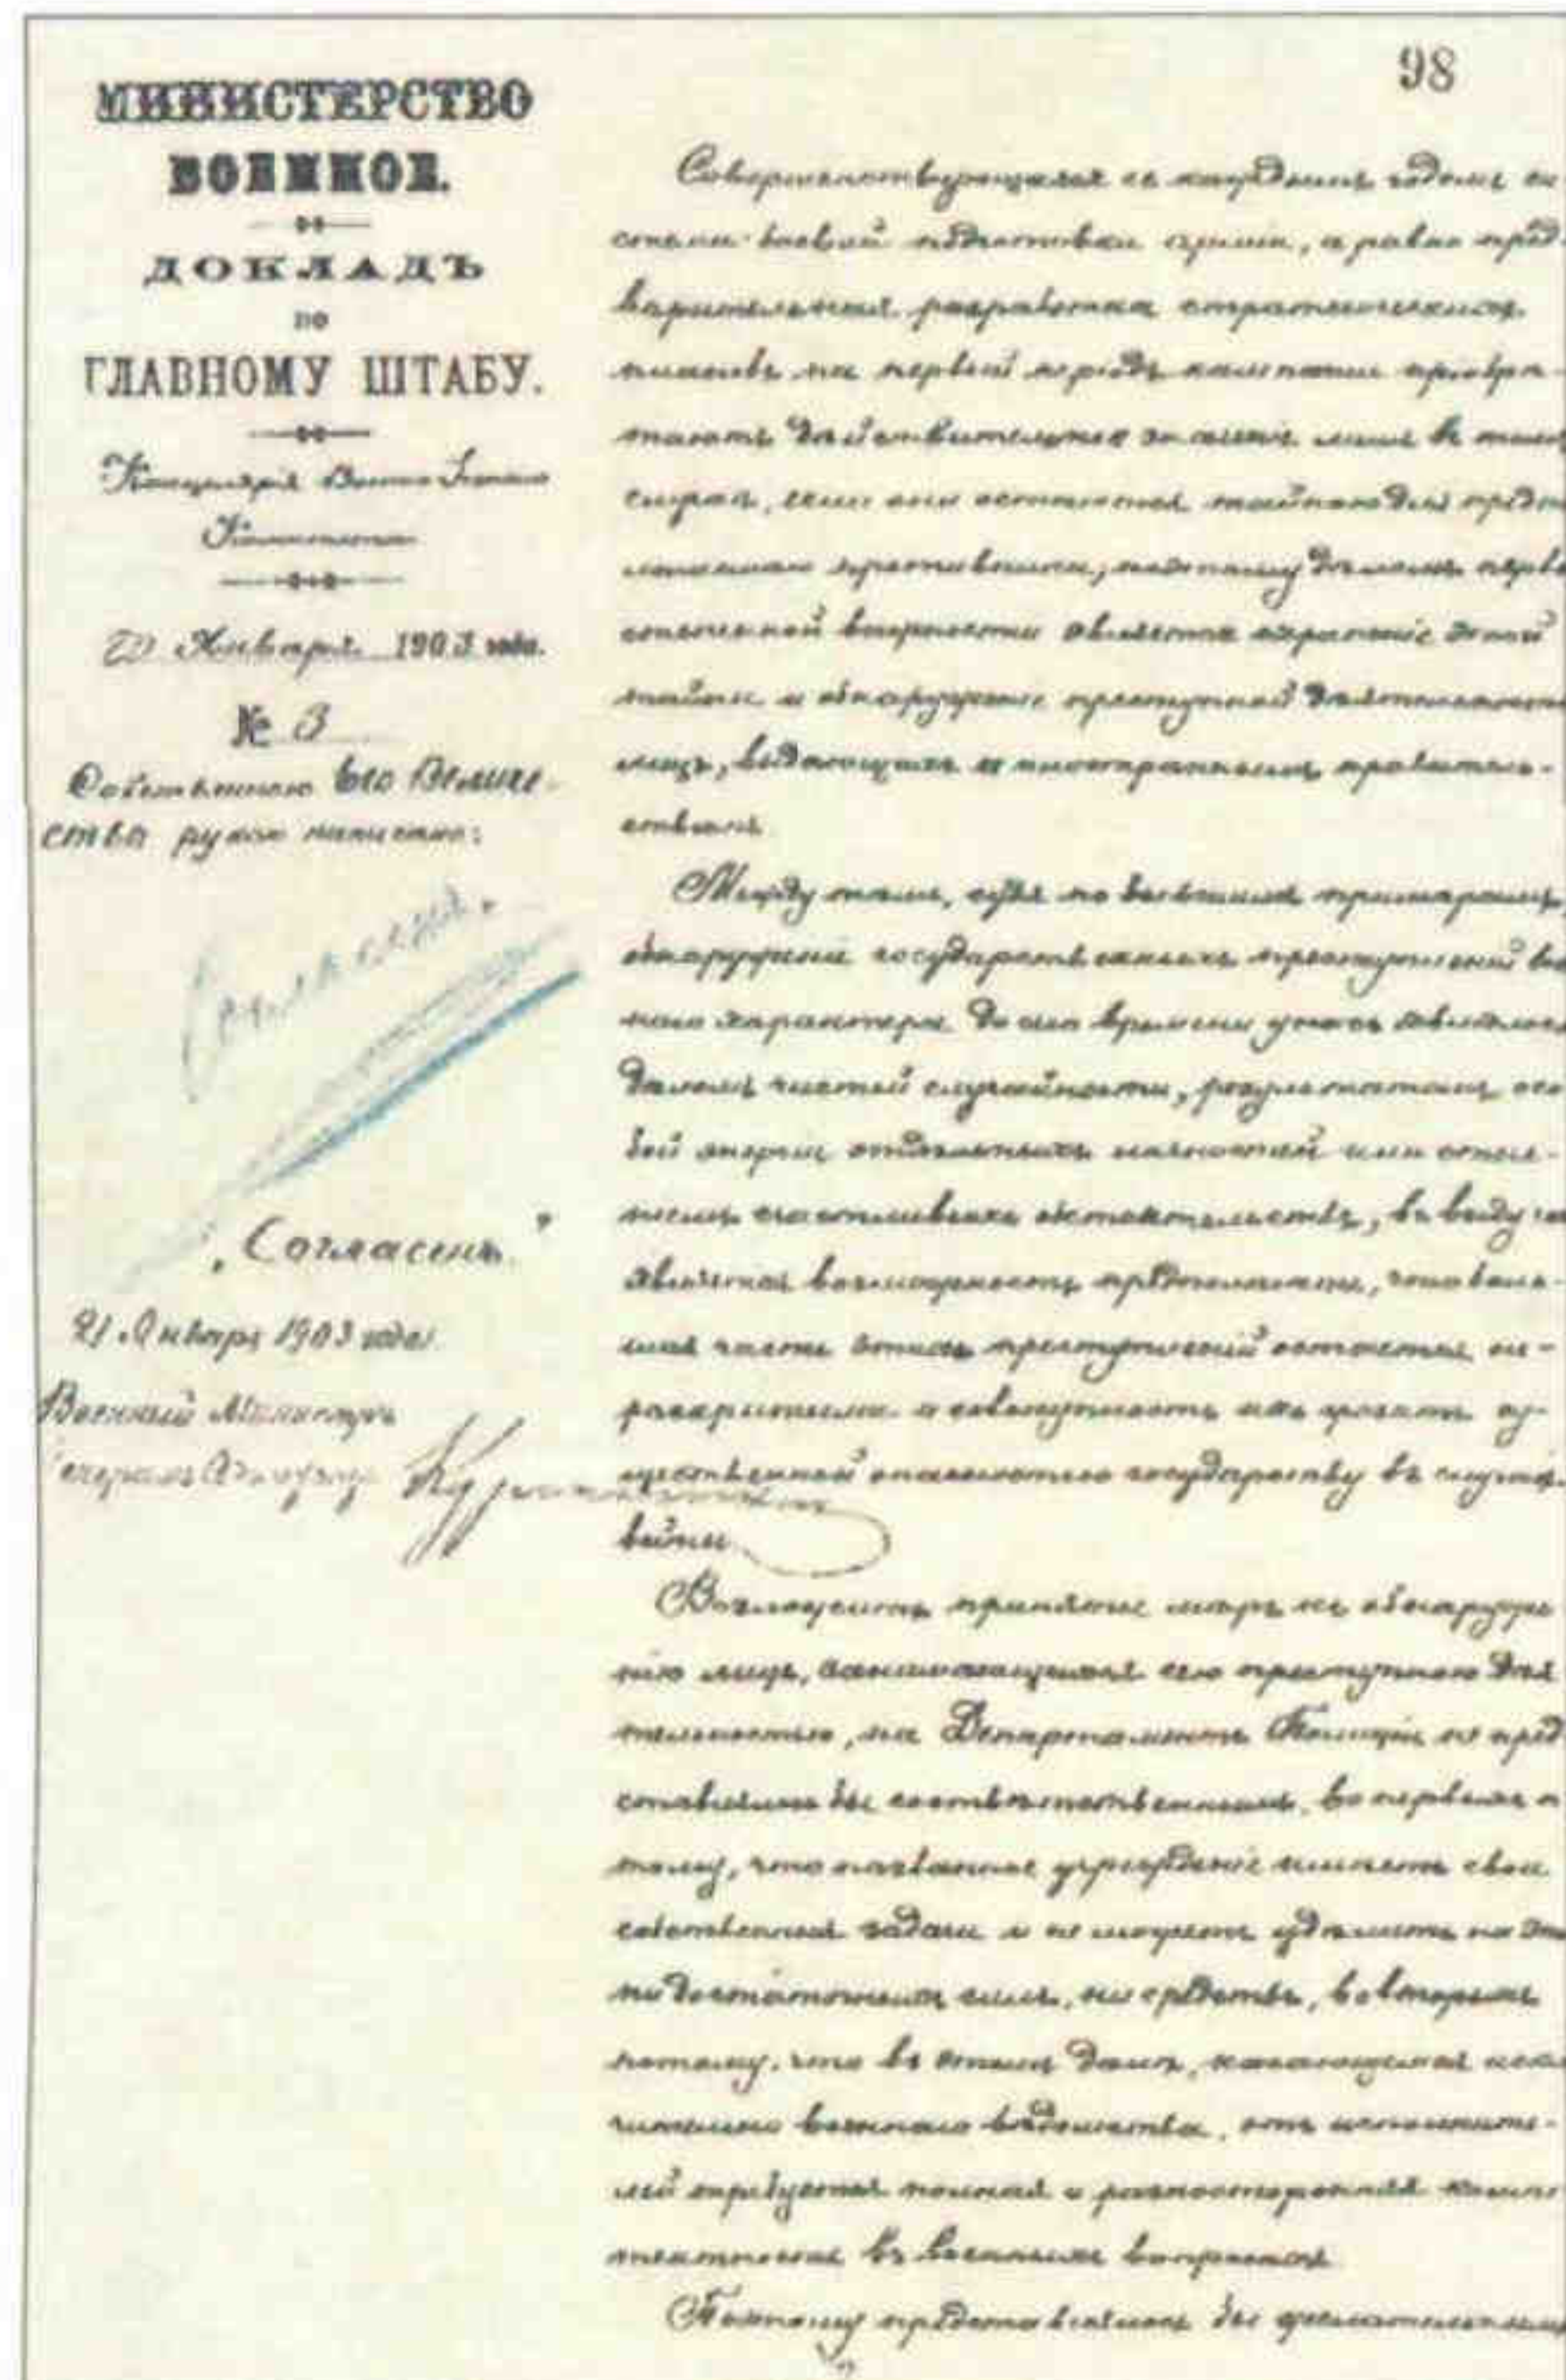 98
МИНИСТЕРСТВО
ВОЕННОЕ.
ДОКЛАДЪ
по
ГЛАВНОМУ ШТАБУ.
Канцелярія Военно-Ученаго
Комитета
20 Января 1903 года.
№ 3
Собственною Его Величе-
ства рукою написано:
Согласенъ.
„Согласенъ."
21 Января 1903 года.
Военный Министръ
Генералъ-Адъютантъ Куропаткинъ
Совершенствующаяся съ каждымъ годомъ си
стема боевой подготовки арміи, а равно пред
варительная разработка стратегическихъ
плановъ на первый періодъ кампаніи пріобрѣ-
таютъ дѣйствительное значеніе лишь въ томъ
случаѣ, если они остаются тайною для предпо
лагаемаго противника; поэтому дѣломъ перво
степенной важности является охраненіе этой
тайны и обнаруженіе преступной дѣятельности
лицъ, выдающихъ ее иностраннымъ правитель-
ствамъ.
Между тѣмъ, судя по бывшимъ примѣрамъ,
обнаруженіе государственныхъ преступленій вое
наго характера до сего времени у насъ являлось
дѣломъ чистой случайности, результатомъ осо
бой энергіи отдѣльныхъ личностей или стече-
ніемъ счастливыхъ обстоятельствъ, въ виду чего
является возможность предполагать, что боль-
шая часть этихъ преступленій остается не-
раскрытыми и совокупность ихъ грозитъ су-
щественной опасностью государству въ случаѣ
войны.
Возложить принятіе мѣръ къ обнаруже
нію лицъ, занимающихся сею преступною дѣя
тельностью, на Департаментъ Полиціи не пред
ставлялось бы соотвѣтственнымъ, во первыхъ по
тому, что названное учрежденіе имѣетъ свои
собственныя задачи и не можетъ удѣлить на это
ни достаточныхъ силъ, ни средствъ, во вторыхъ
потому, что въ этомъ дѣлѣ, касающемся исклю
чительно военнаго вѣдомства, отъ исполните-
лей требуется полная и разносторонняя компе
тентность въ военныхъ вопросахъ.
Поэтому представлялось бы желательнымъ